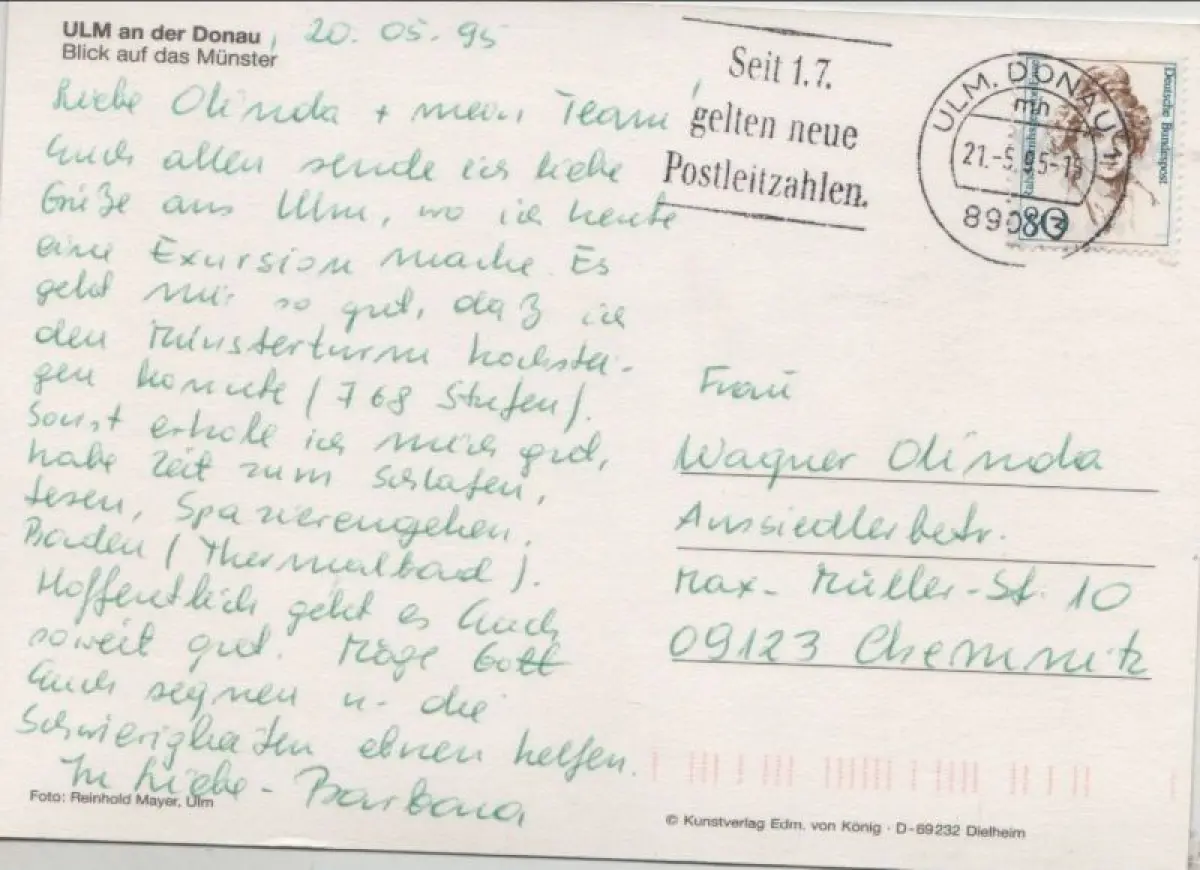 ULM an der Donau, 20. 05. 95
Blick auf das Münster
Liebe Olinda + mein Team,
Euch allen sende ich liebe
Grüße aus Ulm, wo ich heute
eine Exkursion mache. Es
geht mir so gut, daß ich
den Münsterturm hochstei-
gen konnte (768 Stufen).
Sonst erhole ich mich gut,
habe Zeit zum Schlafen,
Lesen, Spazierengehen,
Baden (Thermalbad).
Hoffentlich geht es Euch
soweit gut. Möge Gott
Euch segnen u. die
Schwierigkeiten ebnen helfen.
In Liebe - Barbara
Foto: Reinhold Mayer, Ulm
Seit 1.7.
gelten neue
Postleitzahlen.
ULM, DONAU 1
mh
21.-5.95-15
Deutsche Bundespost
80
Frau
Wagner Olinda
Aussiedlerbetr.
Max-Müller-St. 10
09123 Chemnitz
© Kunstverlag Edm. von König · D-69232 Dielheim